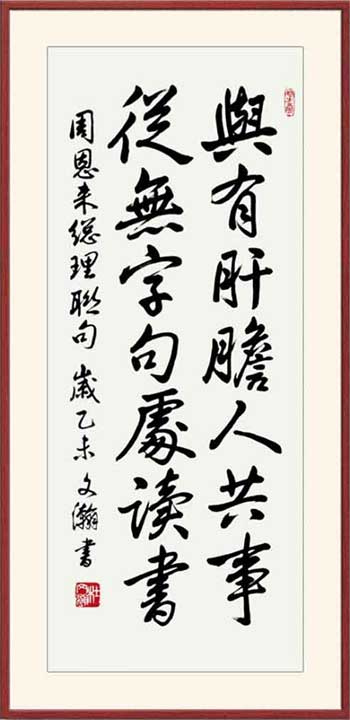 與有肝膽人共事
從無字句處读書
周恩来總理聯句 歲乙未 文瀚書